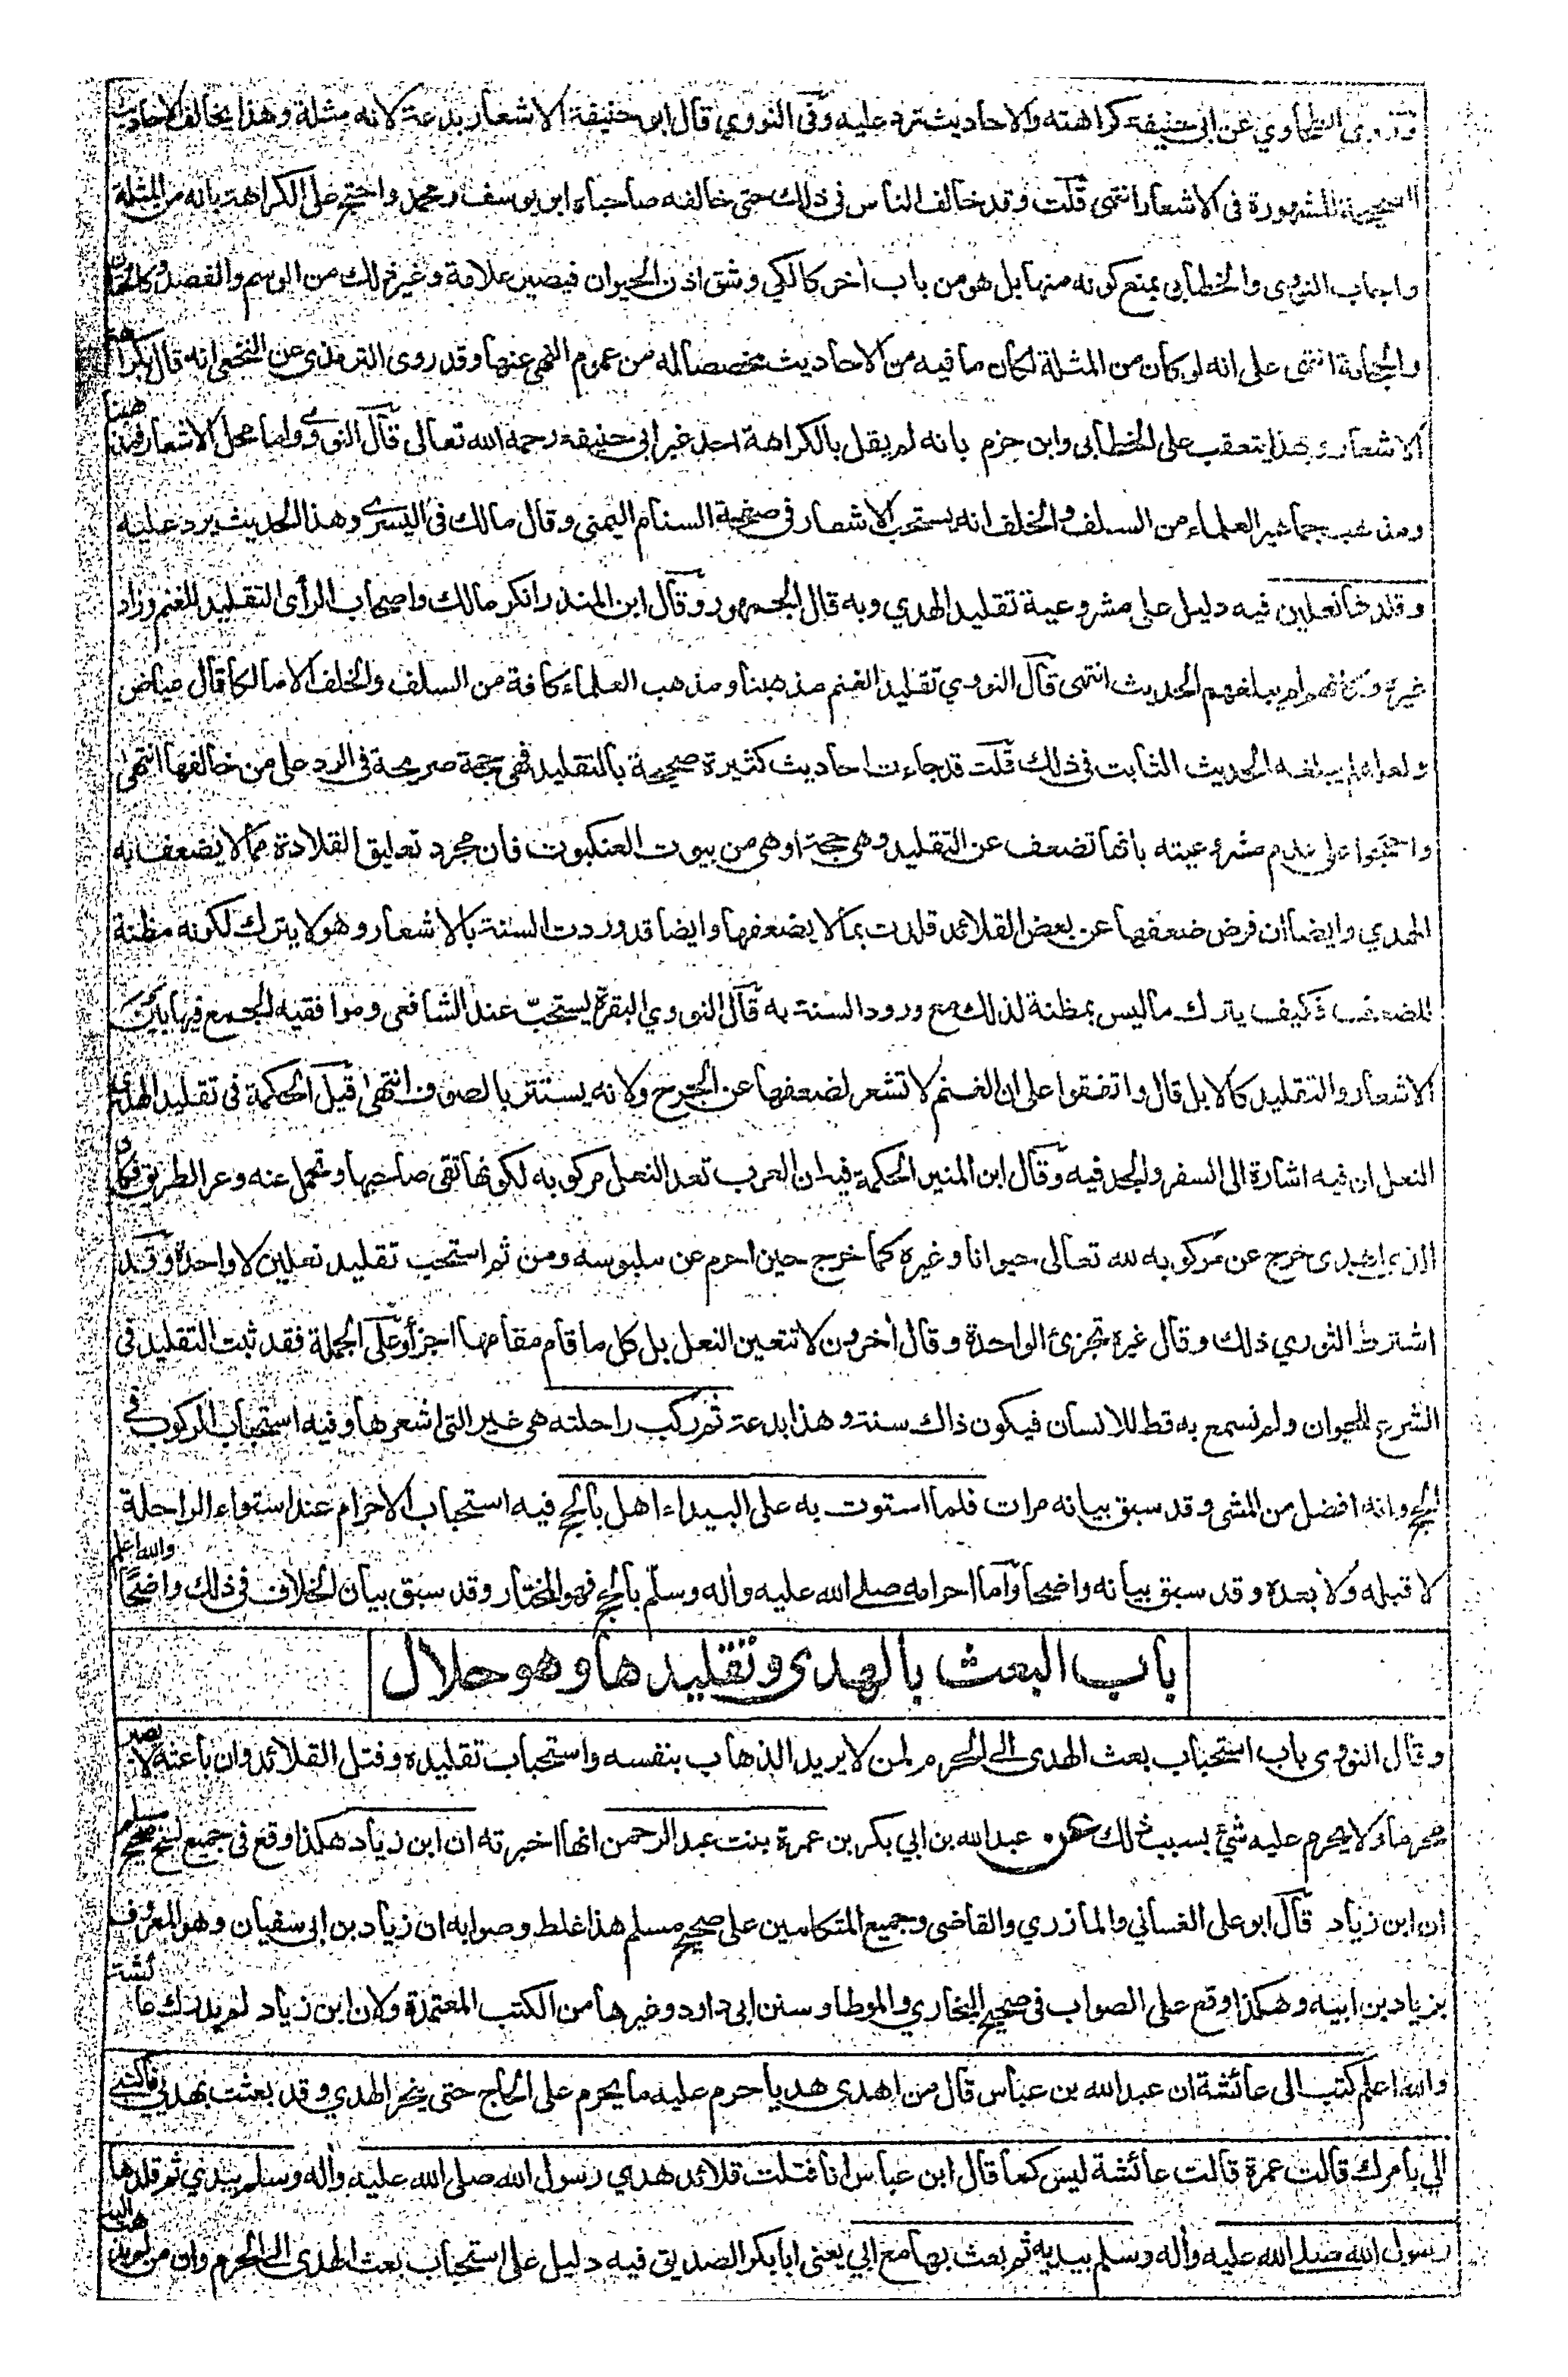 وقد روى الطحاوي عن ابى حنيفة كراهته والاحاديث ترد عليه وفى النووي قال ابو حنيفة الاشعار بدعة لانه مثلة وهذا يخالف الاحاديث
الصحيحة المشهورة فى الاشعار انتهى قلت وقد خالف الناس فى ذلك حتى خالفه صاحباه ابو يوسف ومحمد واحتج على الكراهة بانه من المثلة
واجاب النووى والخطابي بمنع كونه منها بل هو من باب اخر كالكي وشق اذن الحيوان فيصير علامة وغير ذلك من الوسم والفصد وكالختان
والحجامة انتهى على انه لو كان من المثلة لكان ما فيه من الاحاديث مخصصا له من عموم النهى عنها وقد روى الترمذي عن النخعى انه قال بكراهة
الاشعار وبهذا يتعقب على الخطابى وابن حزم بانه لم يقل بالكراهة احد غير ابى حنيفة رحمه الله تعالى قال النووي واما محل الاشعار فمذهبنا
ومذهب جماهير العلماء من السلف والخلف انه يستحب الاشعار فى صفحة السنام اليمنى وقال مالك فى اليسرى وهذا الحديث يرد عليه
وقلدها نعلين فيه دليل على مشروعية تقليد الهدي وبه قال الجمهور وقال ابن المنذر انكر مالك واصحاب الرأى التقليد للغنم وزاد
غيره وكانهم لم يبلغهم الحديث انتهى قال النووي تقليد الغنم مذهبنا ومذهب العلماء كافة من السلف والخلف الا مالكا قال عياض
ولعله لم يبلغه الحديث الثابت فى ذلك قلت قد جاءت احاديث كثيرة صحيحة بالتقليد فهى حجة صريحة فى الرد على من خالفها انتهى
واحتجوا على عدم مشروعيته بانها تضعف عن التقليد وهى حجة اوهى من بيوت العنكبوت فان مجرد تعليق القلادة مما لا يضعف به
الهدي وايضا ان فرض ضعفها عن بعض القلائد قلدت بما لا يضعفها وايضا قد وردت السنة بالاشعار وهو لا يترك لكونه مظنة
للضعف فكيف يترك ما ليس بمظنة لذلك مع ورود السنة به قال النووي البقرة يستحب عند الشافعى وموافقيه الجمع فيها بين
الاشعار والتقليد كالابل قال واتفقوا على ان الغنم لا تشعر لضعفها عن الجرح ولانه يستتر بالصوف انتهى قيل الحكمة فى تقليد الهدى
النعل ان فيه اشارة الى السفر والجد فيه وقال ابن المنير الحكمة فيه ان العرب تعد النعل مركوبه لكونها تقى صاحبها وتحمل عنه وعر الطريق فكان
الذى اهدى خرج عن مركوبه لله تعالى حيوانا وغيره كما خرج حين احرم عن ملبوسه ومن ثم استحب تقليد نعلين لا واحدة وقد
اشترط الثوري ذلك وقال غيره تجزئ الواحدة وقال اخرون لا تتعين النعل بل كل ما قام مقامها اجزأ وعلى الجملة فقد ثبت التقليد فى
الشرع للحيوان ولم نسمع به قط للانسان فيكون ذاك سنة وهذا بدعة ثم ركب راحلته هى غير التى اشعرها وفيه استحباب الركوب فى
الحج وانه افضل من المشى وقد سبق بيانه مرات فلما استوت به على البيداء اهل بالحج فيه استحباب الاحرام عند استواء الراحلة
لا قبله ولا بعده وقد سبق بيانه واضحا واما احرامه صلى الله عليه وآله وسلم بالحج فهو المختار وقد سبق بيان الخلاف فى ذلك واضحا والله اعلم
باب البعث بالهدى وتقليدها وهو حلال
وقال النووى باب استحباب بعث الهدى الى الحرم لمن لا يريد الذهاب بنفسه واستحباب تقليده وفتل القلائد وان باعثه لا يصير
محرما ولا يحرم عليه شئ بسبب ذلك عن عبد الله بن ابي بكر بن عمرة بنت عبد الرحمن انها اخبرته ان ابن زياد هكذا وقع فى جميع نسخ صحيح مسلم
ان ابن زياد قال ابو على الغساني والمازري والقاضى وجميع المتكلمين على صحيح مسلم هذا غلط وصوابه ان زياد بن ابى سفيان وهو المعروف
بزياد بن ابيه وهكذا وقع على الصواب فى صحيح البخاري والموطا وسنن ابى داود وغيرها من الكتب المعتمدة ولان ابن زياد لم يدرك عائشة
والله اعلم كتب الى عائشة ان عبد الله بن عباس قال من اهدى هديا حرم عليه ما يحرم على الحاج حتى ينحر الهدي وقد بعثت بهديي فاكتبى
الي بامرك قالت عمرة قالت عائشة ليس كما قال ابن عباس انا فتلت قلائد هدي رسول الله صلى الله عليه وآله وسلم بيدي ثم قلدها
رسول الله صلى الله عليه وآله وسلم بيديه ثم بعث بها مع ابي يعنى ابا بكر الصديق فيه دليل على استحباب بعث الهدى الى الحرم وان من لم يذهب اليه